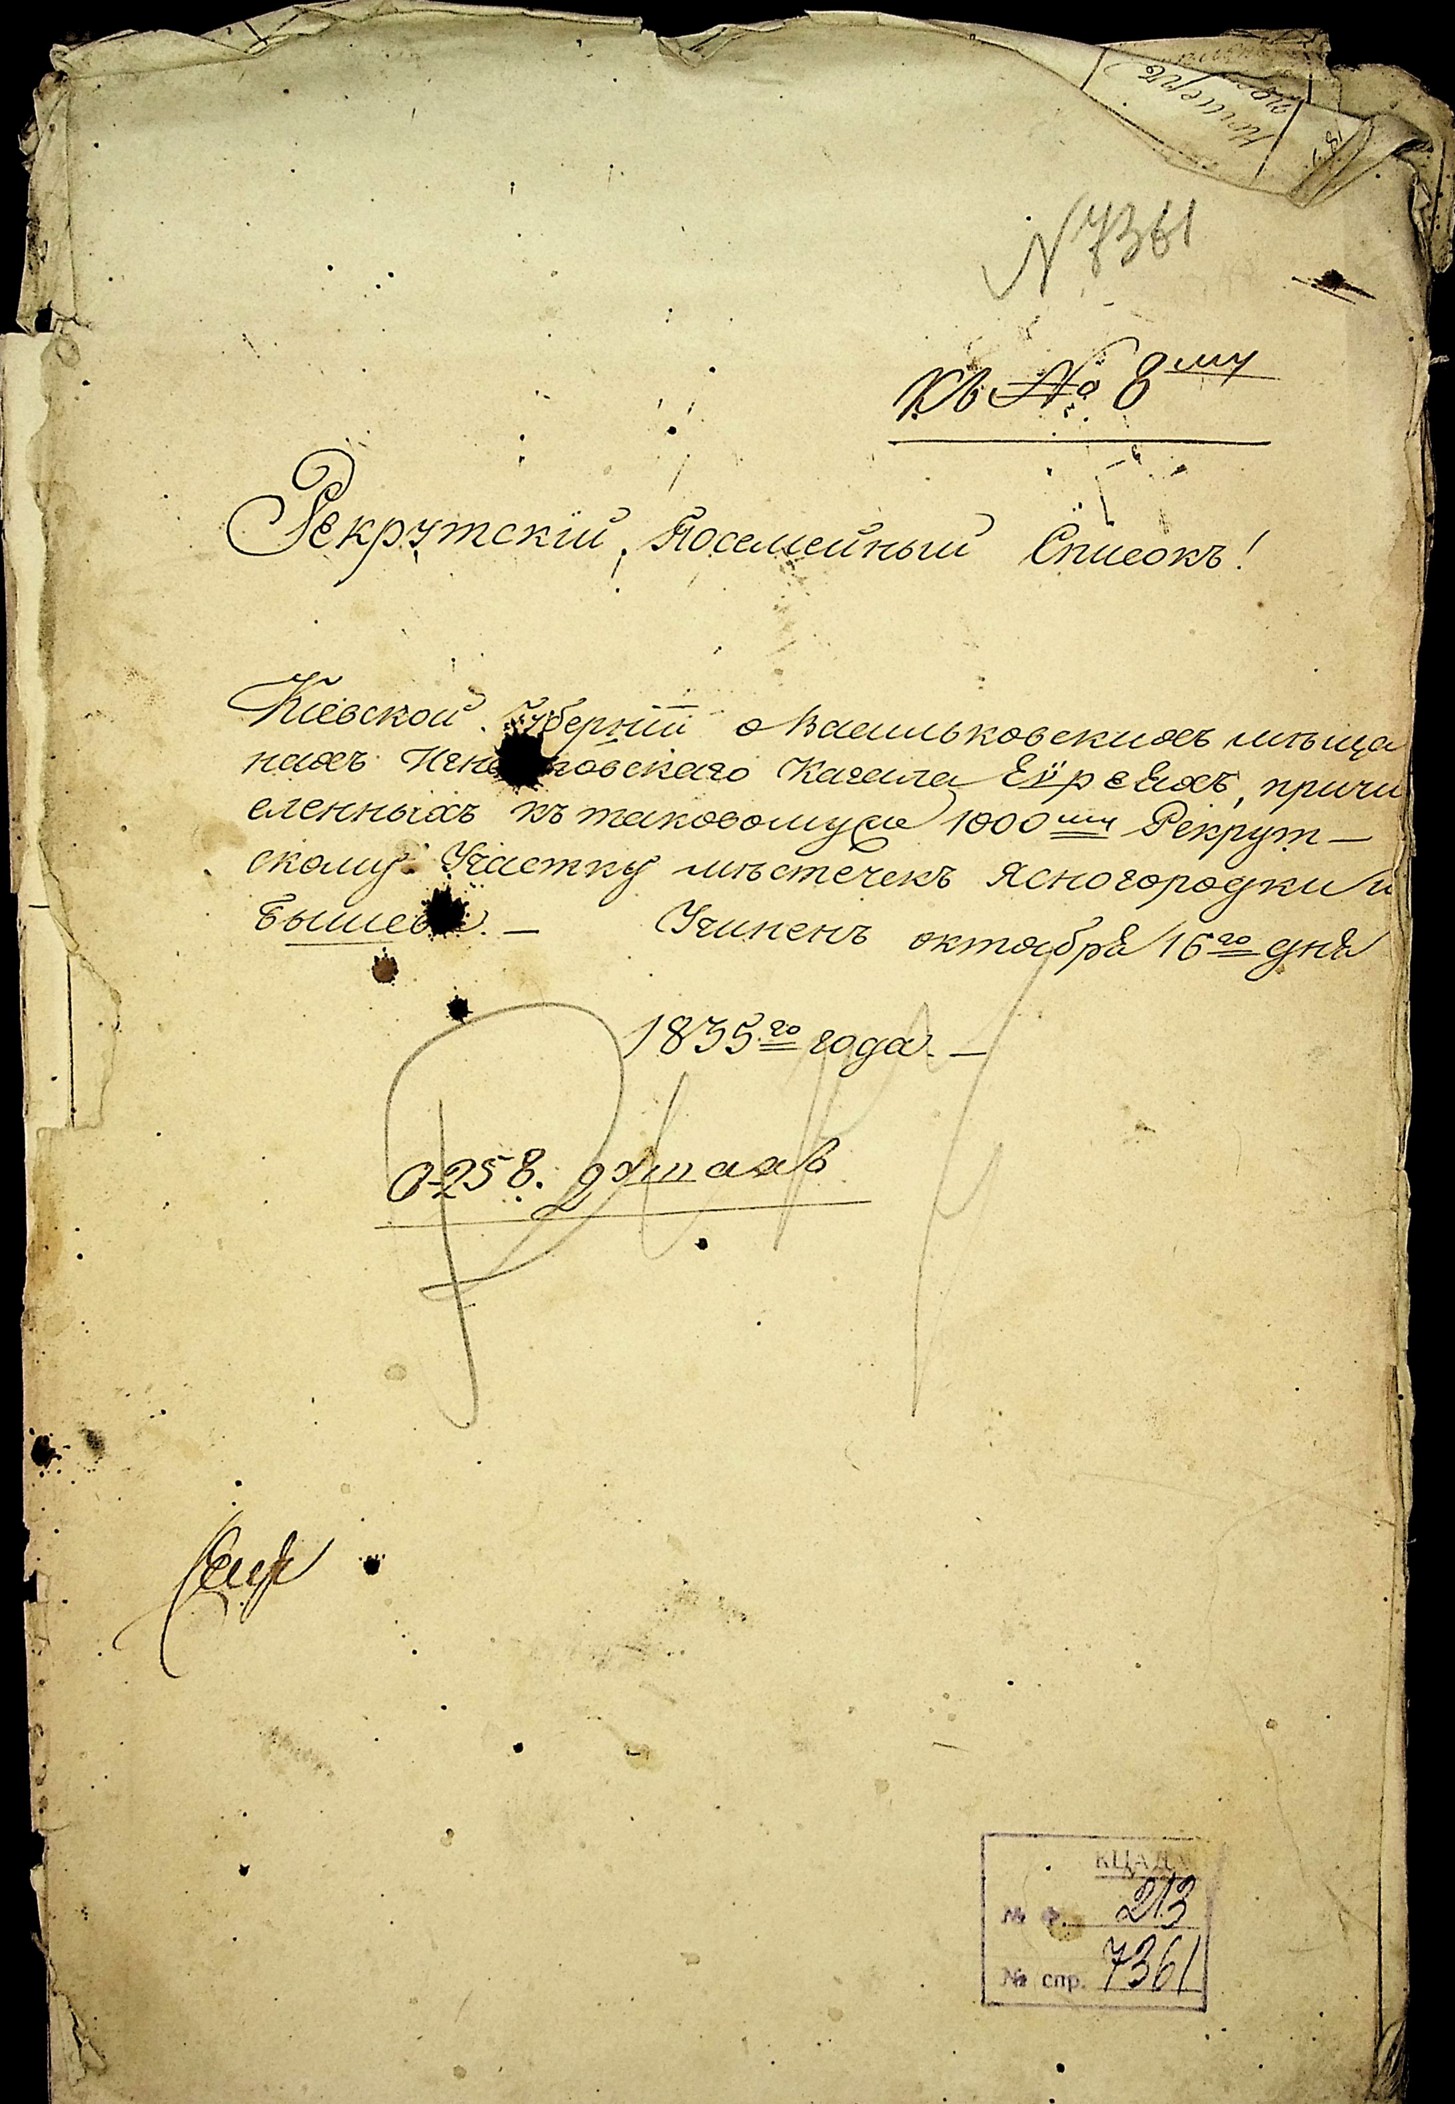 N 7361
Къ № 8му
Рекрутскій Посемейный Списокъ!
Кіевской Губерніи о Васильковскихъ мѣща
нахъ Игна товскаго Кагала Еуреяхъ, причи
сленныхъ къ таковому 1000му Рекрут—
скому Участку мѣстечекъ Ясногородки и
Бышева. — Учиненъ октября 16го дня
1835го года. —
О 258. душахъ
КЦАДА
№ ф. 213
№ спр. 7361